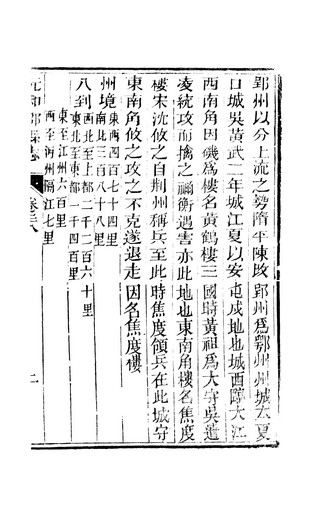 郢州以分上流之勢隋平陳改郢州爲鄂州州城本夏
口城吳黃武二年城江夏以安屯戍地也城西臨大江
西南角因磯爲樓名黃鶴樓三國時黃祖爲太守吳遣
凌統攻而擒之禰衡遇害亦此地也東南角樓名焦度
樓宋沈攸之自荆州稱兵至此時焦度領兵在此城守
東南角攸之攻之不克遂退走因名焦度樓
州境東西四百七十四里
南北三百八十八里
八到西北至上都二千二百六十里
東北至東都一千四百里
東至江州六百里
西至沔州隔江七里
元和郡縣志
卷二八
二